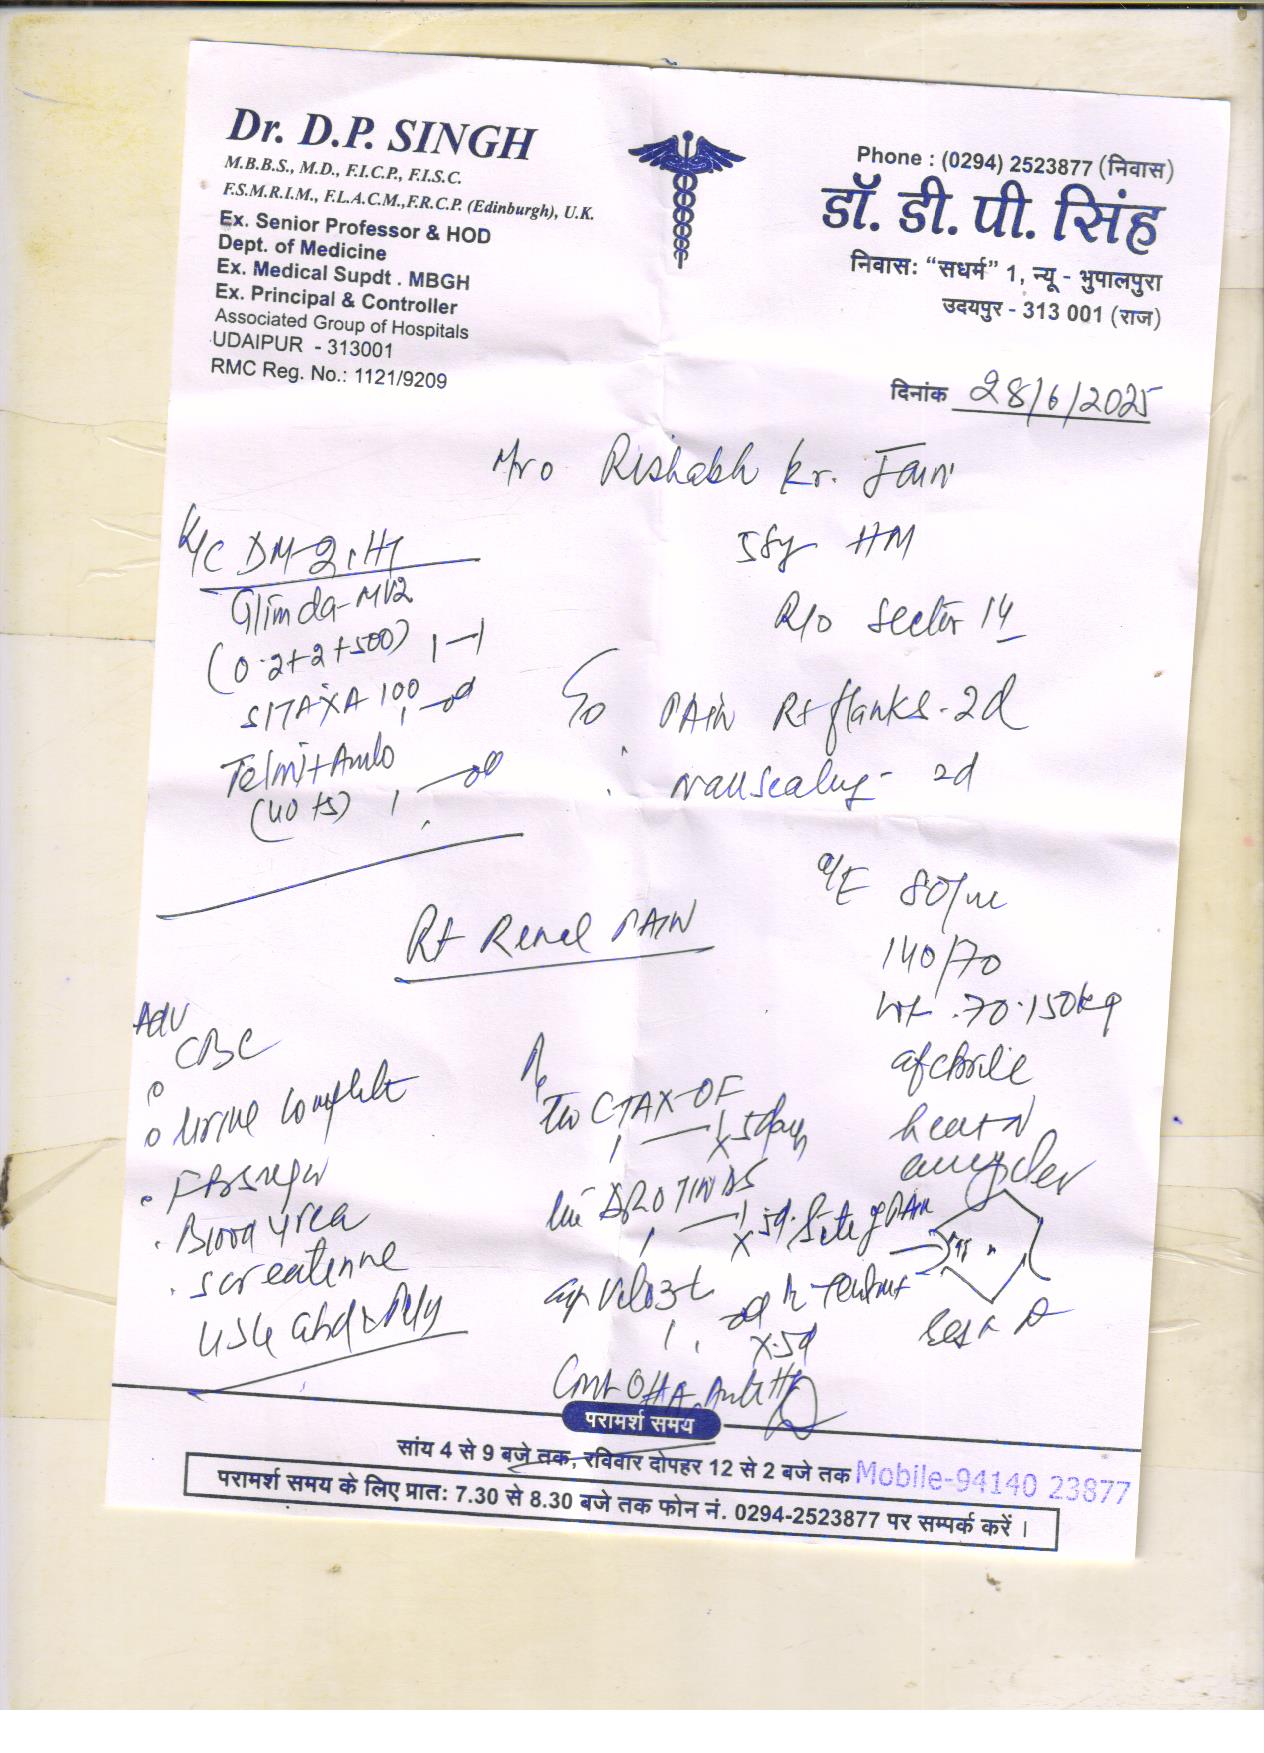 Dr. D.P. SINGH
M.B.B.S., M.D., F.I.C.P., F.I.S.C.
F.S.M.R.I.M., F.L.A.C.M.,F.R.C.P. (Edinburgh), U.K.
Ex. Senior Professor & HOD
Dept. of Medicine
Ex. Medical Supdt . MBGH
Ex. Principal & Controller
Associated Group of Hospitals
UDAIPUR - 313001
RMC Reg. No.: 1121/9209
Phone : (0294) 2523877 (निवास)
डॉ. डी. पी. सिंह
निवास: “सधर्म” 1, न्यू - भुपालपुरा
उदयपुर - 313 001 (राज)
दिनांक 28/6/2025
Rishabh Kr. Jain
58y HM
R/o Sector 14
K/C DM-2
Glimda-MV2
(0.2+2+500) 1-1
SITAXA 100
Telmi+Amlo
(40+5) 1
C/o PAIN Rt flanks - 2d
2d
O/E 80/m
140/70
Wt. 70.150kg
afebrile
heart N
Rt Renal PAIN
Adv
CBC
Urine Complete
Blood Urea
S creatinine
USG abd
Rx
CTAX-OF
1 x 5days
DROTIN DS
1 x 5d. Site of PAIN
cap
x 5d
Cont
परामर्श समय
सांय 4 से 9 बजे तक, रविवार दोपहर 12 से 2 बजे तक
Mobile-94140 23877
परामर्श समय के लिए प्रातः 7.30 से 8.30 बजे तक फोन नं. 0294-2523877 पर सम्पर्क करें ।